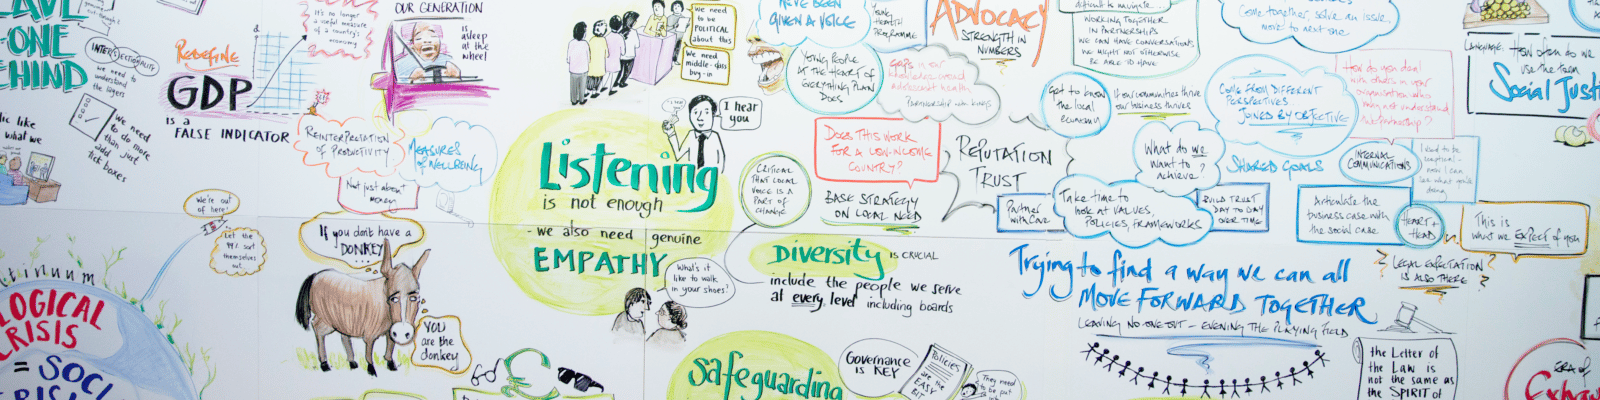 -ONE
EHIND
INTERSECTIONALITY
we need to
understand
the layers
we need
to do more
than just
add
tick boxes
ic like
what we
It's no longer
a useful measure
of a country's
economy
REDEFINE
GDP
is a
FALSE INDICATOR
OUR GENERATION
is
asleep
at the
wheel
REINTERPRETATION
OF PRODUCTIVITY
MEASURES
of WELLBEING
Not just about
money
We're out
of here!
Let the
99% sort
themselves
out..
If you don't have a
DONKEY
...
YOU
are the
donkey
LOGICAL
CRISIS
= SOCI
We need
to be
POLITICAL
about this
We need
middle-class
buy-in
I hear
you
Listening
is not enough
- we also need genuine
EMPATHY
What's it
like to walk
in your shoes?
HAVE BEEN
GIVEN A VOICE
YOUNG
HEALTH
PROGRAMME
YOUNG PEOPLE
AT THE HEART OF
EVERYTHING PLAN
DOES
ADVOCACY
STRENGTH IN
NUMBERS
GAPS in our
knowledge around
adolescent health
Partnership with Kings
DOES THIS WORK
FOR A LOW-INCOME
COUNTRY?
CRITICAL
THAT LOCAL
VOICE IS A
PART OF
CHANGE
BASE STRATEGY
ON LOCAL NEED
REPUTATION
TRUST
Diversity IS CRUCIAL
include the people we serve
at every level including boards
Safeguarding
Governance
IS KEY
Policies
are the
EASY
BIT
They need
to be put
difficult to navigate...
WORKING TOGETHER
IN PARTNERSHIPS
WE CAN HAVE CONVERSATIONS
WE MIGHT NOT OTHERWISE
BE ABLE TO HAVE
Got to know
the local
economy
If our communities thrive
our business thrives
Come together, solve an issue,
move to next one
COME FROM DIFFERENT
PERSPECTIVES
JOINED BY OBJECTIVE
What do we
want to
achieve?
SHARED GOALS
Partner
with Care
Take time to
look at VALUES,
POLICIES, FRAMEWORKS
BUILD TRUST
DAY TO DAY
OVER TIME
How do you deal
with others in your
organisation who
may not understand
the partnership?
INTERNAL
COMMUNICATIONS
Articulate the
business case with
the social case
HEART +
HEAD
This is
what we EXPECT of you
? LEGAL EXPECTATION ?
IS ALSO THERE
LANGUAGE. How often do we
use the term
Social Justi
Trying to find a way we can all
MOVE FORWARD TOGETHER
LEAVING NO-ONE OUT - EVENING THE PLAYING FIELD
the Letter of
the Law is
not the same as
the SPIRIT of
ERA of
Exhau